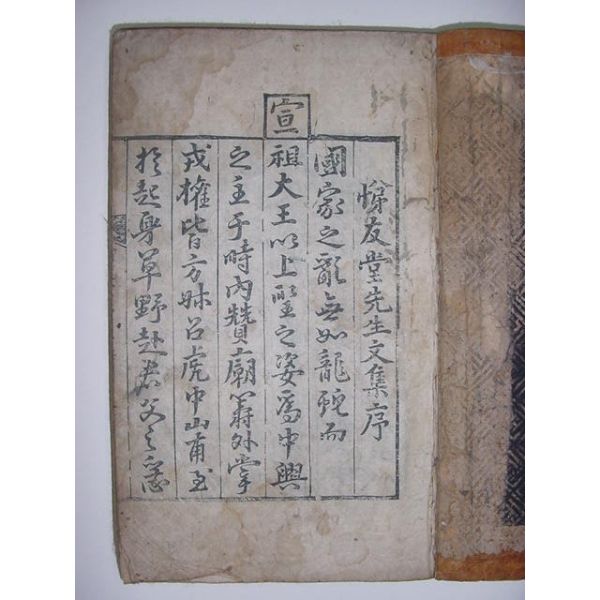 悌友堂先生文集序
國家之亂無如龍虵而
宣祖大王以上聖之姿爲中興
之主于時內贊廟筭外掌
戎權皆方叔召虎中山甫至
於起身草野赴君父之急